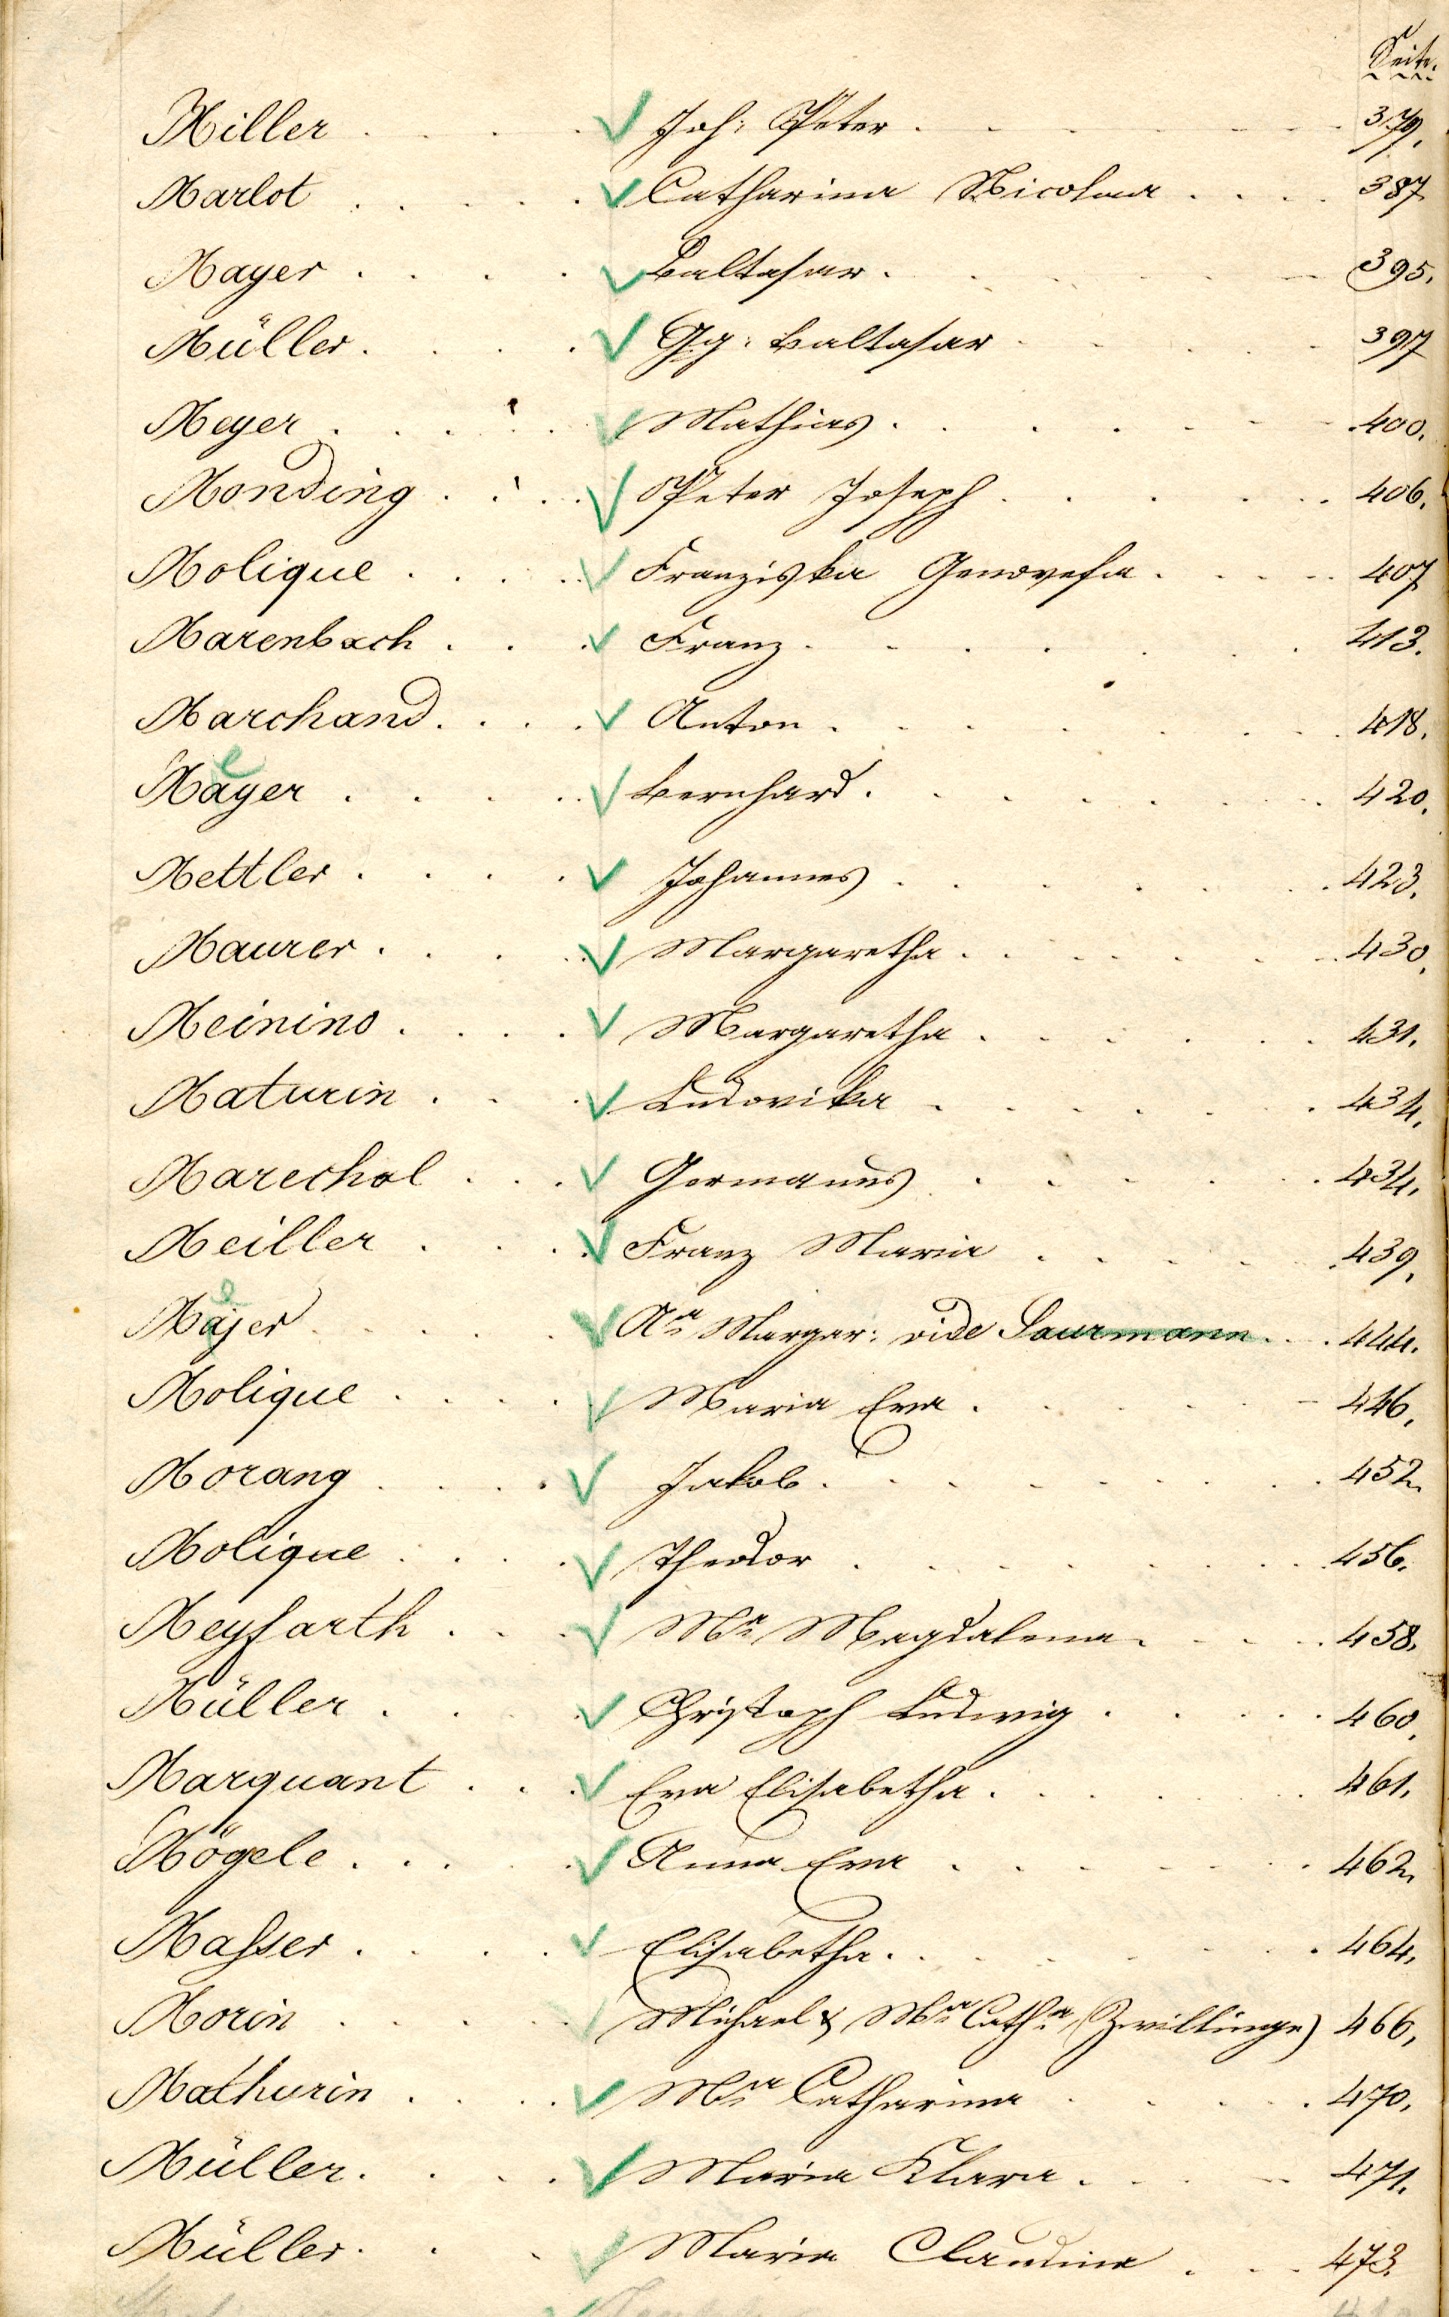 Seite.
Miller . . . . Joh: Peter . . . . . . 379.
Marlot . . . . . Catharina Nicolaa . . . . 387
Mayer . . . . Baltasar . . . . . . 395.
Müller . . . . Gg: Baltasar . . . . . 397
Meyer . . . . . Mathias . . . . . . 400.
Monding . . . . Peter Joseph . . . . . 406.
Molique . . . . . Franziska Genovefa . . . . 407
Marenbach . . . Franz . . . . . . . 413.
Marchand . . . . Anton . . . . . . . 418.
Mayer e . . . . . Bernhard . . . . . . . 420.
Mettler . . . . Johannes . . . . . . 423.
Maurer . . . . . Margaretha . . . . . . 430.
Meinino . . . . Margaretha . . . . . . 431.
Maturin . . . Ludovika . . . . . . 434.
Marechal . . . Germanus . . . . . . 434.
Meiller . . . . Franz Maria . . . . . 439.
Majer e . . . . . Aa Margar: vide Saurmann . . . 444.
Molique . . . . Maria Eva . . . . . 446.
Morang . . . . Jakob . . . . . . . 452.
Molique . . . . Theodor . . . . . . . 456.
Meyfarth . . . Ma Magdalena . . . . 458.
Müller . . . . Christoph Ludwig . . . . . 460.
Marquant . . . Eva Elisabetha . . . . . 461.
Mögele . . . . . Anna Eva . . . . . . 462.
Masser . . . . Elisabetha . . . . . . 464.
Morin . . . . . Michael & Ma Catha (Zwillinge) 466.
Mathurin . . . . Ma Catharina . . . . 470.
Müller . . . . Maria Klara . . . . 471.
Müller . . . Maria Claudina . . . 473.